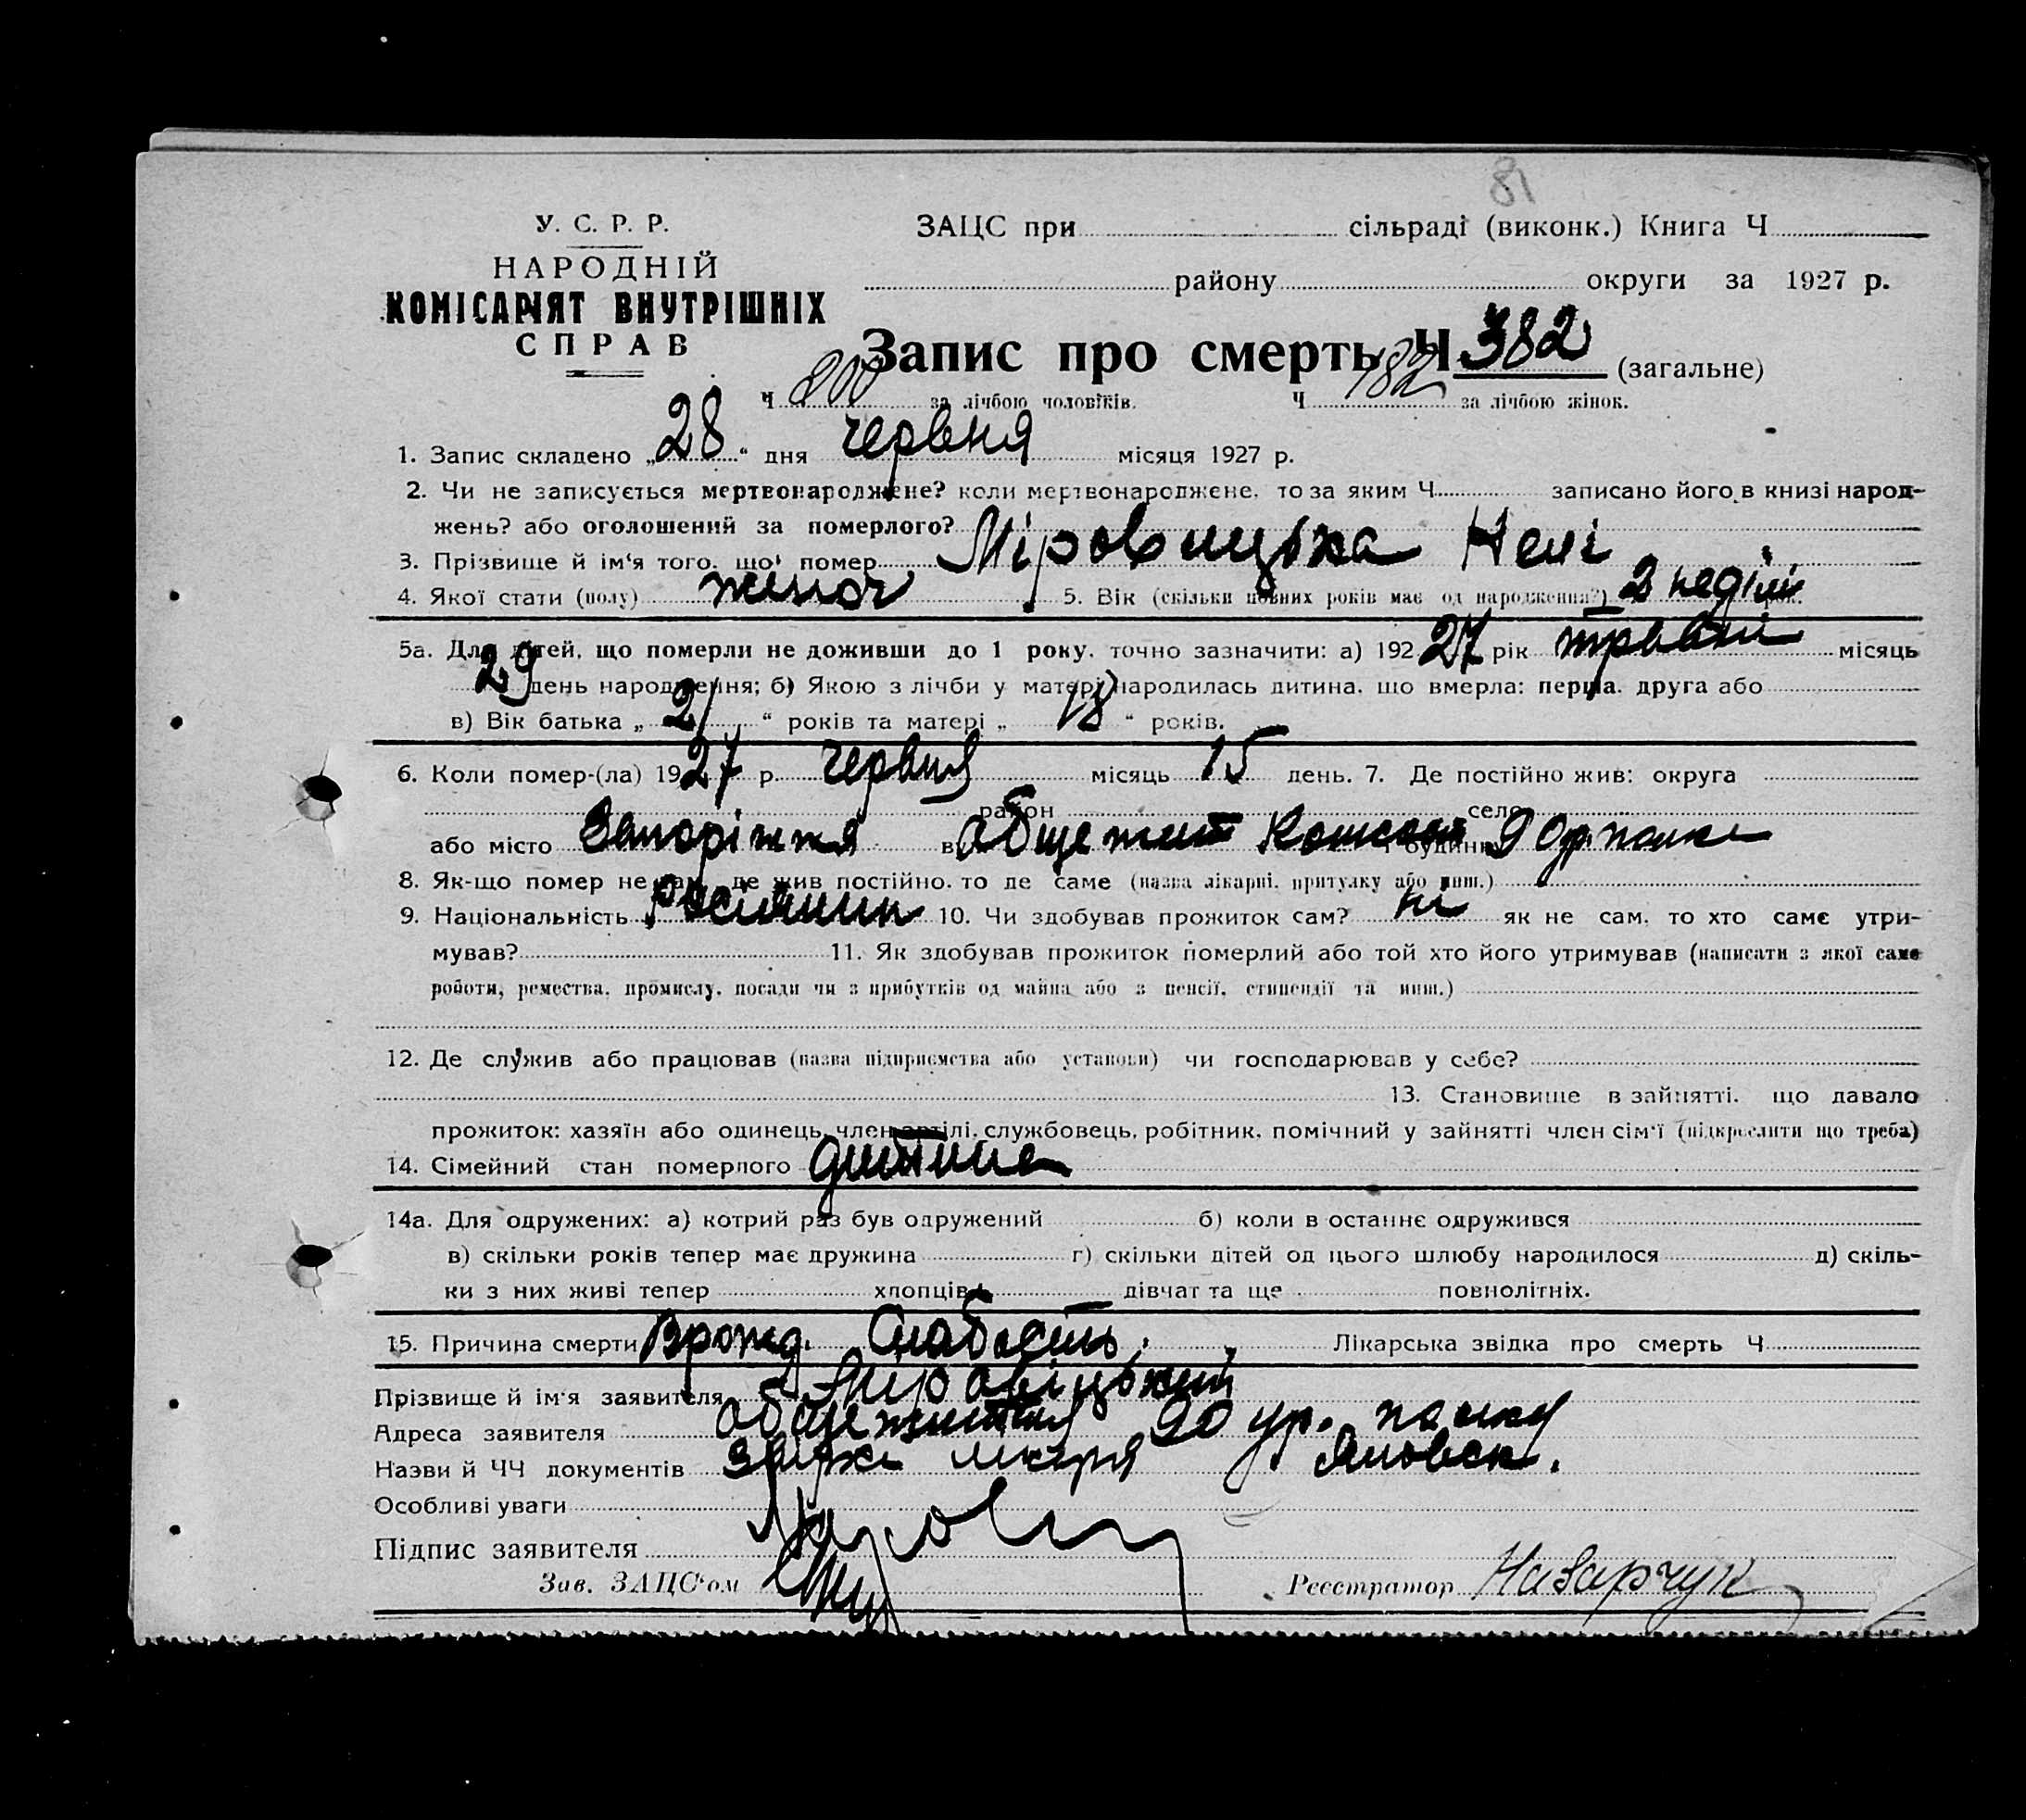 81
У. С. Р. Р.
НАРОДНІЙ
КОМІСАРІЯТ ВНУТРІШНІХ
СПРАВ
ЗАЦС при сільраді (виконк.) Книга Ч
району округи за 1927 р.
Запис про смерть Ч 382 (загальне)
Ч 200 за лічбою чоловіків. Ч 182 за лічбою жінок.
1. Запис складено „28“ дня червня місяця 1927 р.
2. Чи не записується мертвонароджене? коли мертвонароджене, то за яким Ч записано його в книзі народ-
жень? або оголошений за померлого?
3. Прізвище й ім‘я того, що помер Міровицька Нелі
4. Якої стати (полу) жіноч 5. Вік (скільки повних років має од народження?) 2 неділі рок.
5а. Для дітей, що померли не доживши до 1 року, точно зазначити: а) 192 27 рік травні місяць
29 день народження; б) Якою з лічби у матері народилась дитина, що вмерла: перша, друга або
в) Вік батька „21“ років та матері „18“ років.
6. Коли помер-(ла) 1927 р. червня місяць 15 день. 7. Де постійно жив: округа
район село
або місто Запоріжжя в общежит будин
8. Як-що помер не там, де жив постійно, то де саме (назва лікарні, притулку або инш.)
9. Національність росіянин 10. Чи здобував прожиток сам? ні як не сам, то хто саме утри-
мував? 11. Як здобував прожиток померлий або той хто його утримував (написати з якої саме
роботи, ремества, промислу, посади чи з прибутків од майна або з пенсії, стипендії та инш.)
12. Де служив або працював (назва підприємства або установи) чи господарював у себе?
13. Становище в зайнятті, що давало
прожиток: хазяїн або одинець, член артілі, службовець, робітник, помічний у зайнятті член сім‘ї (підкреслити що треба)
14. Сімейний стан померлого дитина
14а. Для одружених: а) котрий раз був одружений б) коли в останнє одружився
в) скільки років тепер має дружина г) скільки дітей од цього шлюбу народилося д) скіль-
ки з них живі тепер хлопців дівчат та ще повнолітніх.
15. Причина смерти Врожд. Слабость. Лікарська звідка про смерть Ч
Прізвище й ім‘я заявителя Міровицький
Адреса заявителя общежиття 90 ур. полку
Назви й ЧЧ документів лікаря Яновск.
Особливі уваги
Підпис заявителя
Зав. ЗАЦС‘ом Реєстратор Назарчук